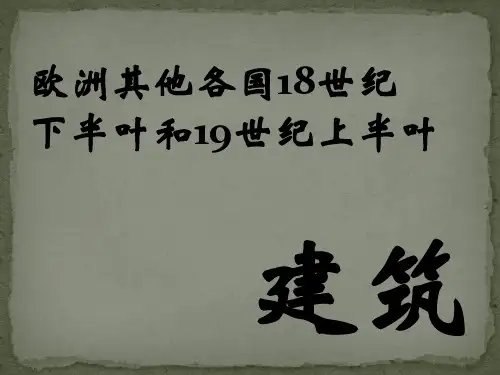 欧洲其他各国18世纪
下半叶和19世纪上半叶
建筑